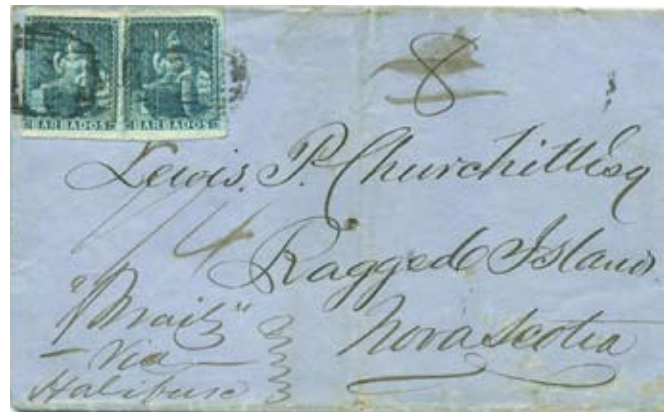 BARBADOS BARBADOS
8
Lewis. P. Churchill Esq
1/4
Ragged Island
Nova Scotia
"Mail"
- Via -
Halifax